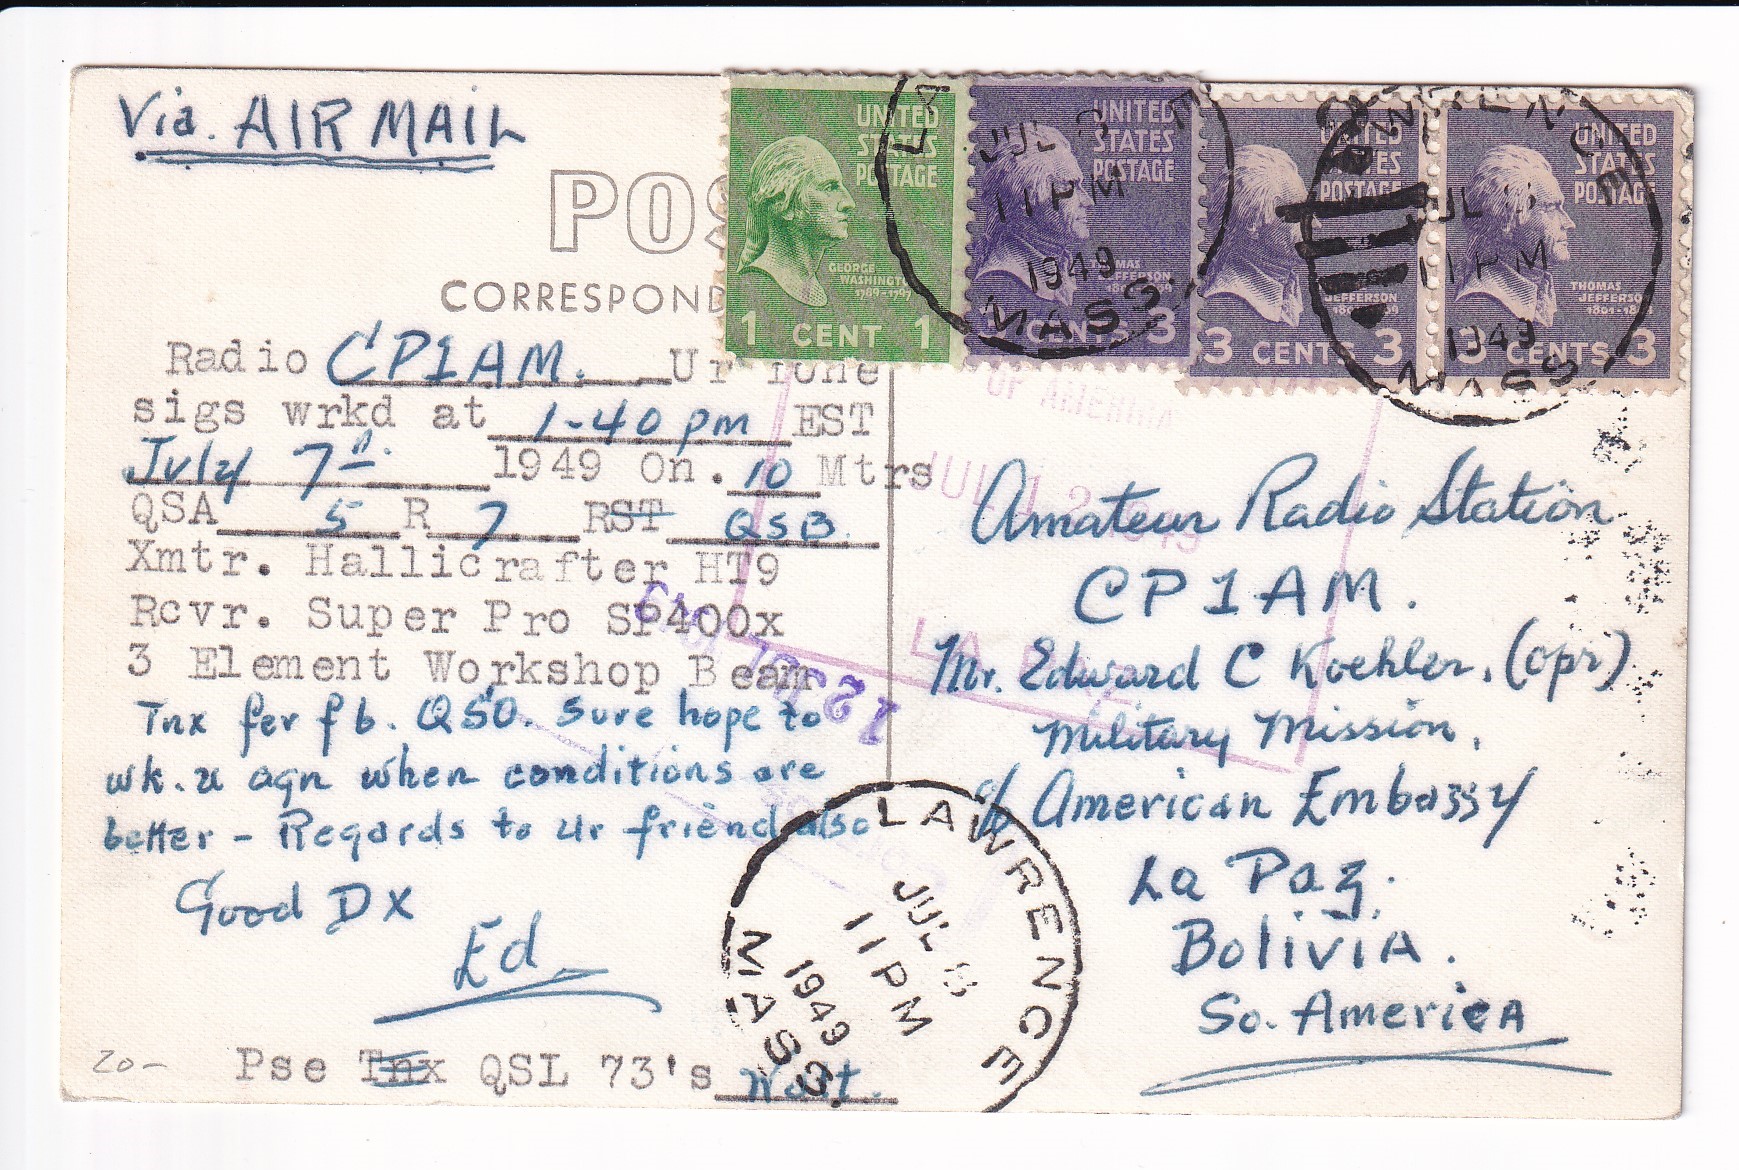 Via. AIR MAIL
POS
CORRESPOND
UNITED
STATES
POSTAGE
GEORGE
WASHINGTON
1789-1797
1 CENT 1
UNITED
STATES
POSTAGE
THOMAS
JEFFERSON
CENTS 3
UNITED
STATES
POSTAGE
JEFFERSON
3 CENTS 3
UNITED
STATES
POSTAGE
THOMAS
JEFFERSON
3 CENTS 3
JUL 8
11 PM
1949
MASS
LAWRENCE
JUL 8
11 PM
1949
MASS
Radio CP1AM. Ur fone
sigs wrkd at 1-40 pm EST
July 7th 1949 On. 10 Mtrs
QSA 5 R 7 RST QSB.
Xmtr. Hallicrafter HT9
Rcvr. Super Pro SP400x
3 Element Workshop Beam
Tnx fer fb. QSO. Sure hope to
wk. u agn when conditions are
better - Regards to ur friend also
Good DX
Ed
20- Pse Tnx QSL 73's
OF AMERICA
JUL 12 1949
LA PAZ
12 JUL 1949
LAWRENCE
JUL 8
11 PM
1949
MASS.
Amateur Radio Station
CP1AM.
Mr. Edward C Koehler. (opr)
Military Mission.
c/o American Embassy
La Paz.
Bolivia.
So. America